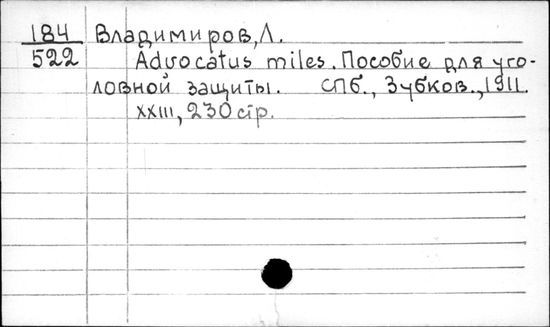 184 Владимиров, Л.
522 Advocatus miles. Пособие для уго-
ловной защиты. СПб., Зубков., 1911.
XXIII, 230 стр.